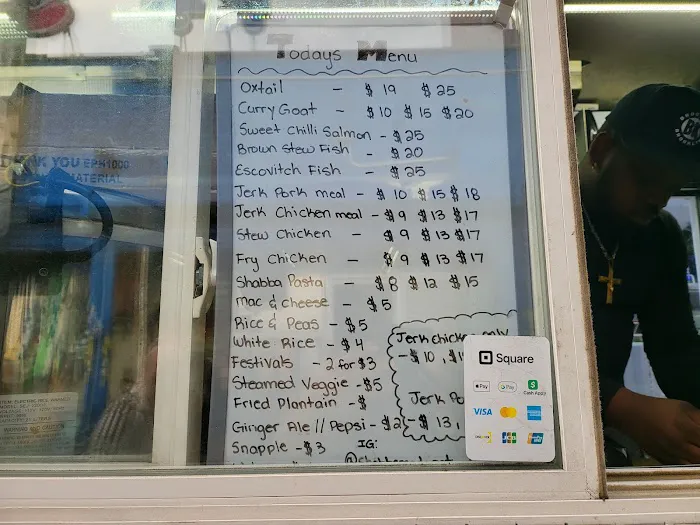 Todays Menu
Oxtail - $19 $25
Curry Goat - $10 $15 $20
Sweet Chilli Salmon - $25
Brown Stew Fish - $20
Escovitch Fish - $25
Jerk Pork meal - $10 $15 $18
Jerk Chicken meal - $9 $13 $17
Stew Chicken - $9 $13 $17
Fry Chicken - $9 $13 $17
Shabba Pasta - $8 $12 $15
Mac & cheese - $5
Rice & Peas - $5
White Rice - $4
Festivals - 2 for $3
Steamed Veggie - $5
Fried Plantain - $
Ginger Ale // Pepsi - $2
Snapple - $3
IG:
Jerk chicken only
- $10, $1
Jerk Po
- $13,
Square
Pay
Pay
Cash App
VISA
JCB
YOU
MATERIAL
WARNING